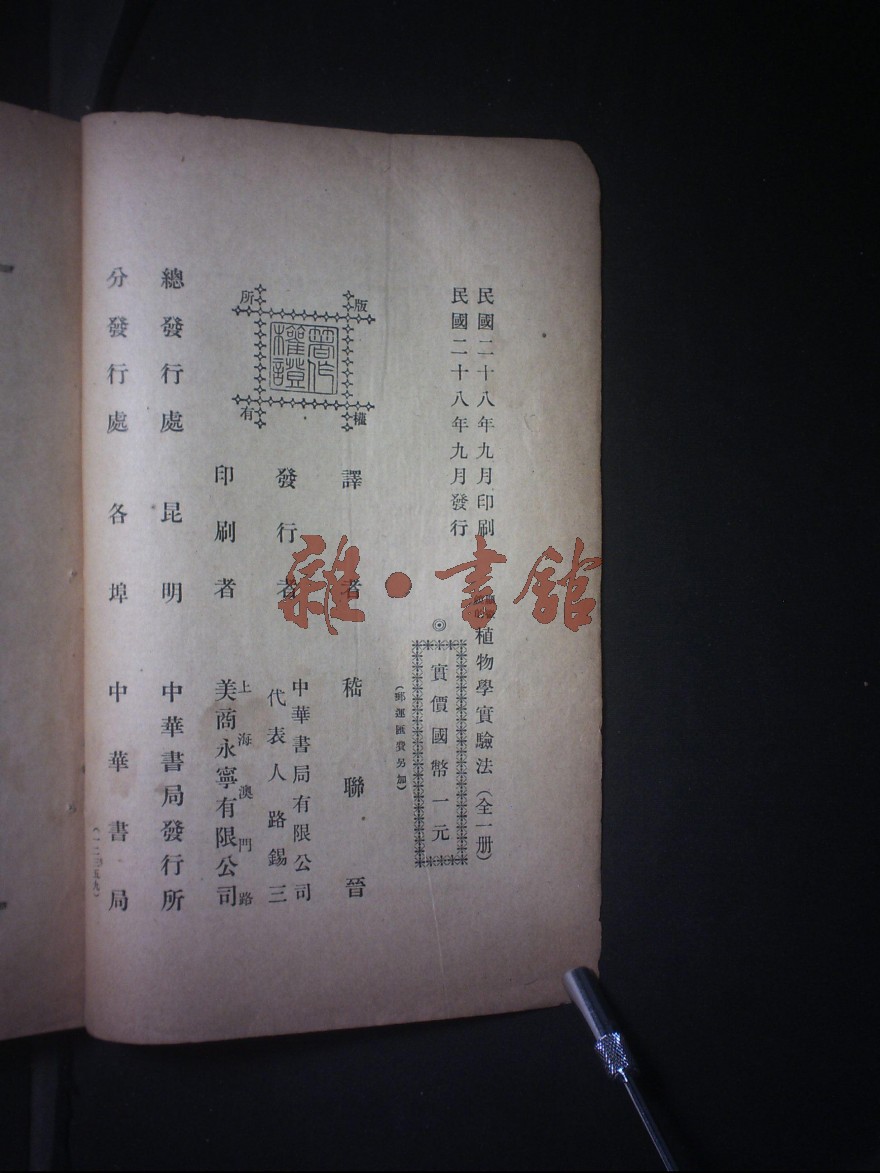 民國二十八年九月印刷
植物學實驗法(全一册)
民國二十八年九月發行
◎實價國幣一元
(郵運匯費另加)
版權所有
著作權證
譯者 嵇聯晉
發行者 中華書局有限公司
代表人路錫三
印刷者 上海澳門路
美商永寧有限公司
總發行處 昆明 中華書局發行所
分發行處 各埠 中華書局
雜·書館